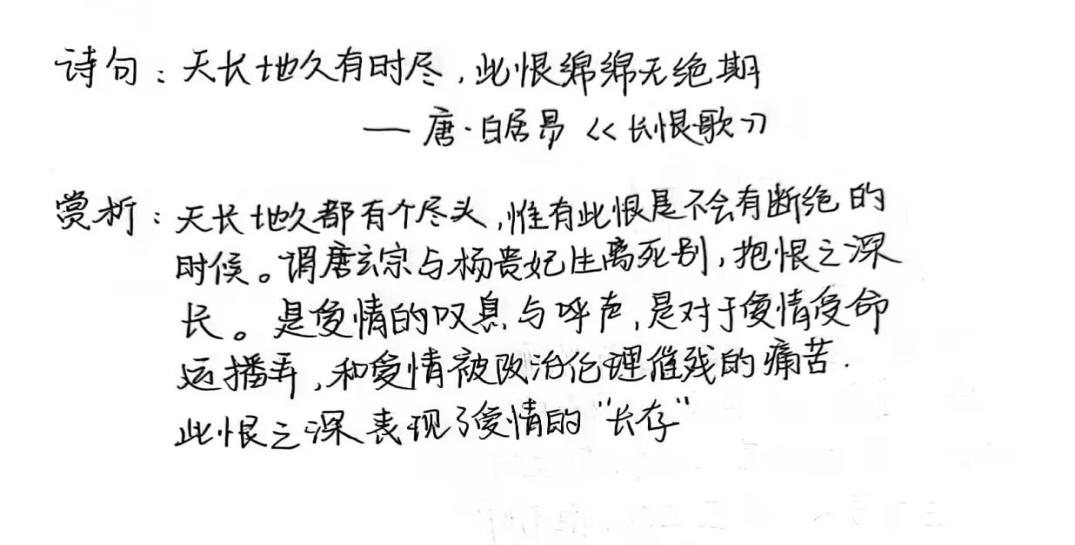 诗句：天长地久有时尽，此恨绵绵无绝期
— 唐·白居易《长恨歌》
赏析：天长地久都有个尽头，惟有此恨是不会有断绝的
时候。谓唐玄宗与杨贵妃生离死别，抱恨之深
长。是爱情的叹息与呼声，是对于爱情受命
运播弄，和爱情被政治伦理催残的痛苦．
此恨之深表现了爱情的“长存”